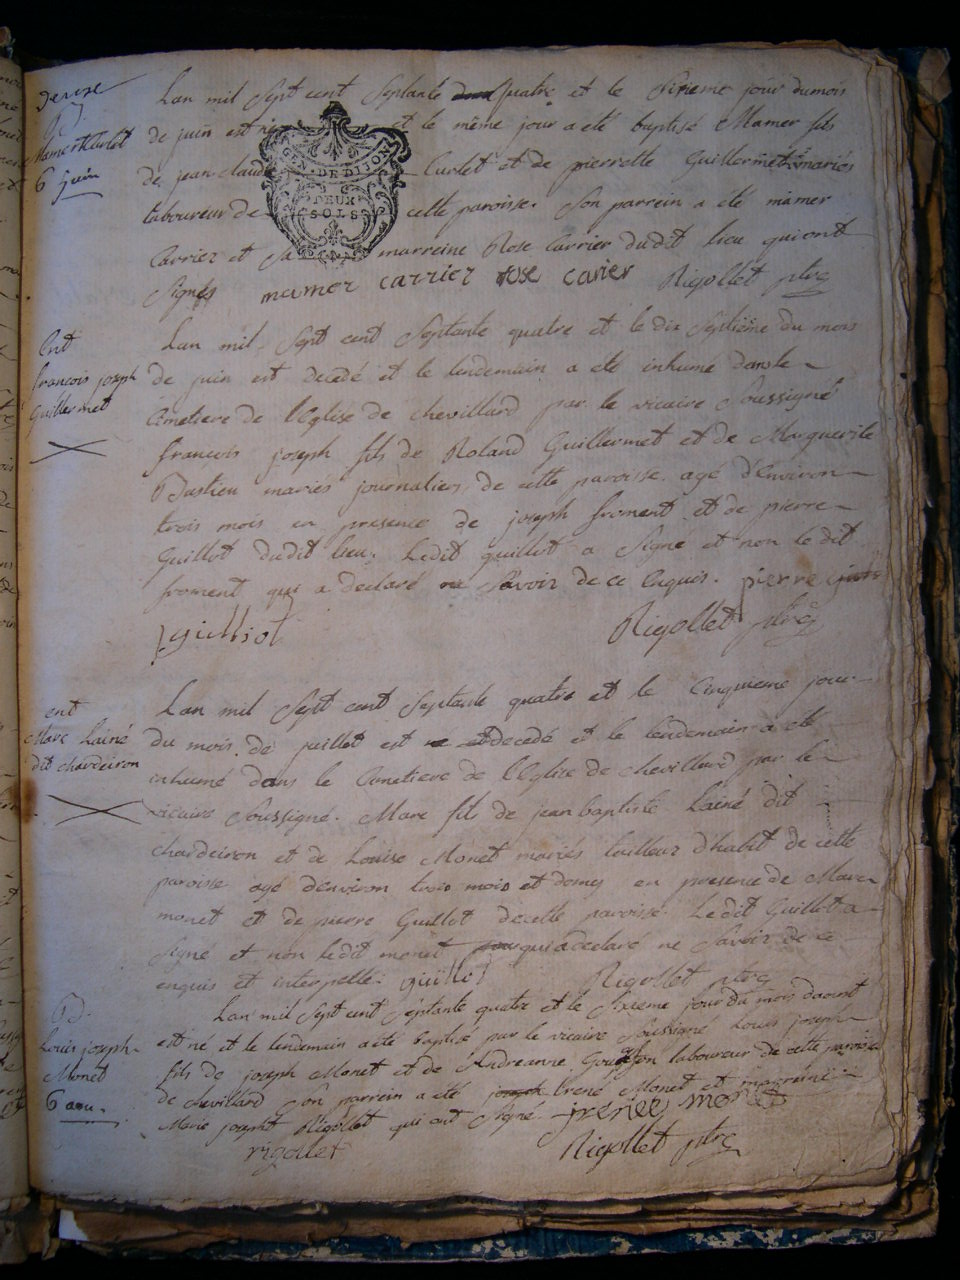 Lan mil Sept cent Septante quatre et le Sixieme jour du mois
Mamert Curlet
6 juin
de juin est né et le même jour a eté baptisé Mamer fils
de jean claude Curlet et de pierrette Guillermet mariés
GEN. DE DIJON
DEUX
SOLS
laboureur de cette paroisse. Son parrein a eté mamer
Carrier et Sa marreine Rose Carrier dudit lieu qui ont
Signés mamer carrier rose carier Rigollet ptre
Ent
francois joseph
Guillermet
Lan mil Sept cent Septante quatre et le dix Septieme du mois
de juin est decedé et le lendemain a eté inhumé dans le
Cimetiere de l'Eglise de chevillard par le vicaire Soussigné
francois joseph fils de Roland Guillermet et de Marguerite
Bastien mariés journaliers de cette paroisse agé d'Environ
trois mois en presence de joseph froment et de pierre
Guillot dudit lieu. Ledit guillot a Signé et non le dit
froment qui a declaré ne Savoir de ce Enquis. pierre
guilliot Rigollet ptre
ent
Marc Lainé
dit chardeiron
Lan mil Sept cent Septante quatre et le Cinquieme jour
du mois de juillet est decedé et le lendemain a eté
inhumé dans le Cimetiere de l'Eglise de chevillard par le
vicaire Soussigné. Marc fils de jean baptiste Lainé dit
chardeiron et de Louise Monet mariés tailleur d'habit de cette
paroisse agé d'environ trois mois et domes en presence de Marc
monet et de pierre Guillot de cette paroisse. Le dit Guillot a
Signé et non ledit monet qui a declaré ne Savoir de ce
enquis et interpellé. guilliot Rigollet ptre
Bd.
Louis joseph
Monet
6 aou.
Lan mil Sept cent Septante quatre et le Sixieme jour du mois daoust
est né et le lendemain a eté baptisé par le vicaire Soussigné Louis joseph
fils de joseph Monet et de Andreanne laboureur de cette paroisse
de chevillard Son parrein a eté Irené Monet et marreine
Marie josephte Rigollet qui ont Signé. jrénée monet
rigollet Rigollet ptre